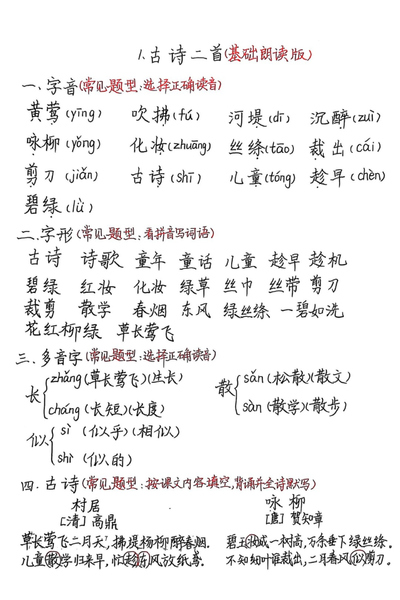 1.古诗二首(基础朗读版)
一、字音(常见题型:选择正确读音)
黄莺(yīng) 吹拂(fú) 河堤(dī) 沉醉(zuì)
咏柳(yǒng) 化妆(zhuāng) 丝绦(tāo) 裁出(cái)
剪刀(jiǎn) 古诗(shī) 儿童(tóng) 趁早(chèn)
碧绿(lǜ)
二.字形(常见题型:看拼音写词语)
古诗 诗歌 童年 童话 儿童 趁早 趁机
碧绿 红妆 化妆 绿草 丝巾 丝带 剪刀
裁剪 散学 春烟 东风 绿丝绦 一碧如洗
花红柳绿 草长莺飞
三.多音字(常见题型:选择正确读音)
长 zhǎng(草长莺飞)(生长)
cháng(长短)(长度)
散 sǎn(松散)(散文)
sàn(散学)(散步)
似 sì(似乎)(相似)
shì(似的)
四.古诗(常见题型:按课文内容填空,背诵并全诗默写)
村居
[清]高鼎
草长莺飞二月天,拂堤杨柳醉春烟.
儿童散学归来早,忙趁东风放纸鸢.
咏柳
[唐]贺知章
碧玉妆成一树高,万条垂下绿丝绦.
不知细叶谁裁出,二月春风似剪刀.